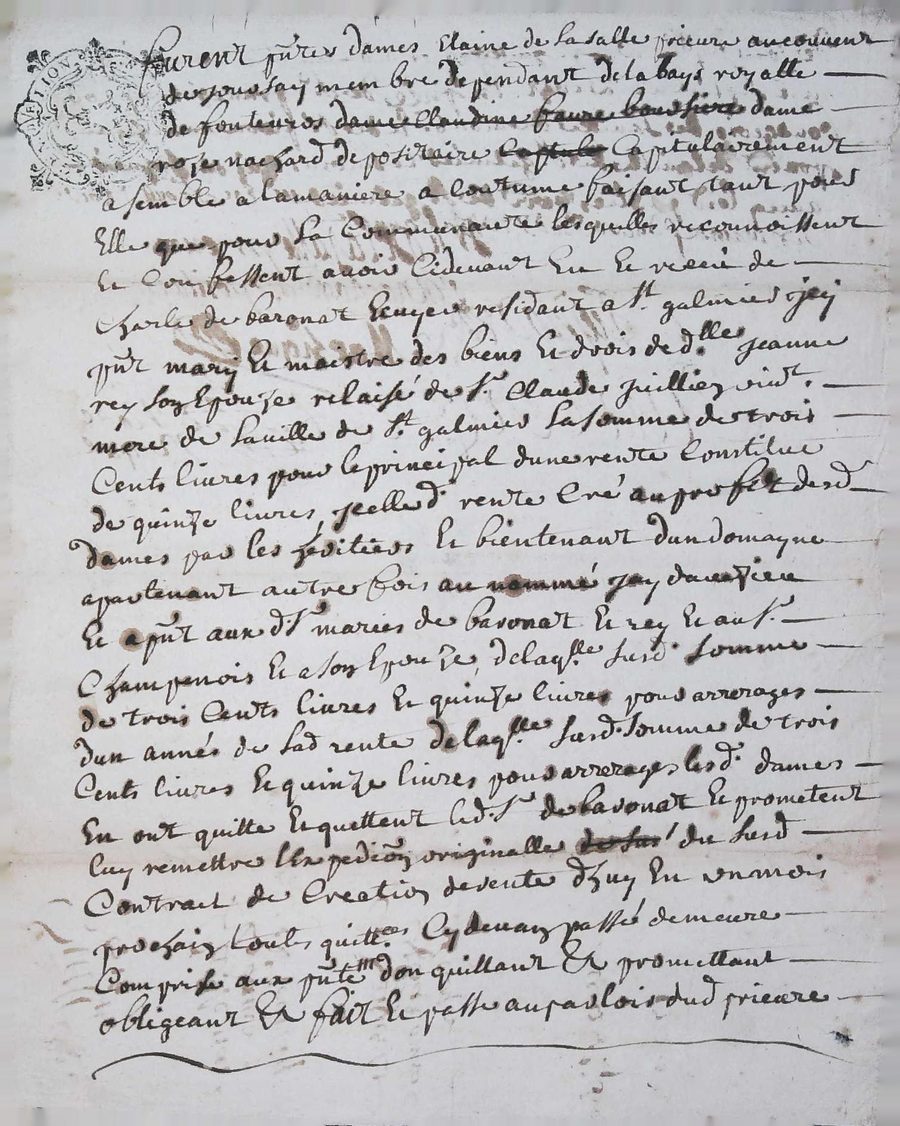 furent pntes dames Elaine de la salle prieure au couvent
de joursay membre dependant de labays royalle
de fonteuros dame Claudine faure boussiere dame
roze nachard depositaire Captulairement
asemble a la maniere a Coutume faisant tant pour
Elle que pour la Communaute lesquelles reconnoissent
et Confessent avoir cidevant Eu et receu de
Charle de baronat Ecuyer residant a St galmier jcy
pnt mary et maistre des biens et drois de dlle jeanne
rey son Epouze relaisé de Sr Claude
de la ville de St galmier la somme de trois
Cents livres pour le principal dune rente Constitue
de quinze livres jcelled rente Cré au profit desd
dames par les héritiers et bientenant dun domayne
apartenant autrefois au nommé
et apnt aux dSr maries de baronat et rey et au Sr
Champenois et a son Epouze, delaqlle susd somme
de trois Cents livres et quinze livres pour arrerages
dun annés de lad rente delaqlle susd somme de trois
Cents livres et quinze livres pour arrerages lesd dames
En ont quitte et quettent led Sr de baronat et prometent
luy remettre lExpedion originalle du susd
Contrait de Creation de rente dhuy En un mois
prochain touts quittces Cy devan passé demeure
Comprise aux pntem don quittant et promettant
obligeant et fait et passe au parlois dud prieure